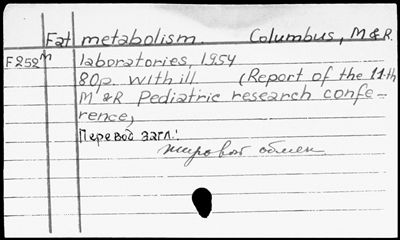 Fat metabolism. Columbus, M & R.
F252M laboratories, 1954
80p. with ill. (Report of the 11-th
M & R Pediatric research confe-
rence)
Перевод загл.:
жировой обмен